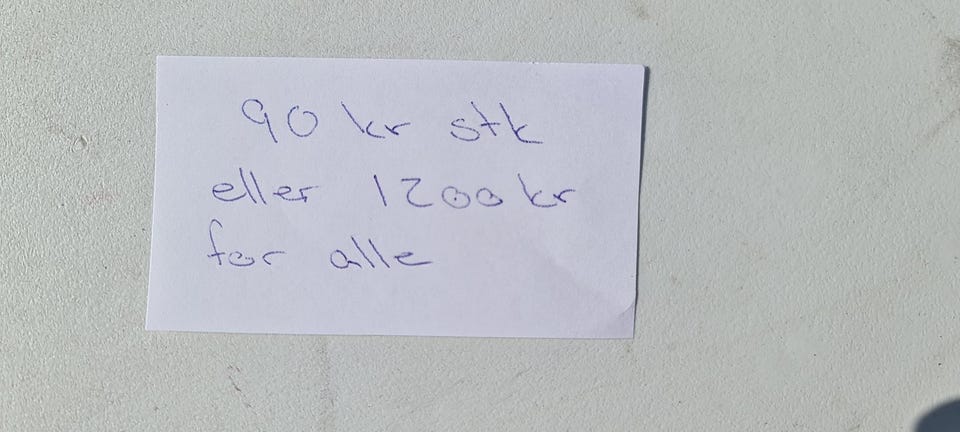 90 kr stk
eller 1200 kr
for alle